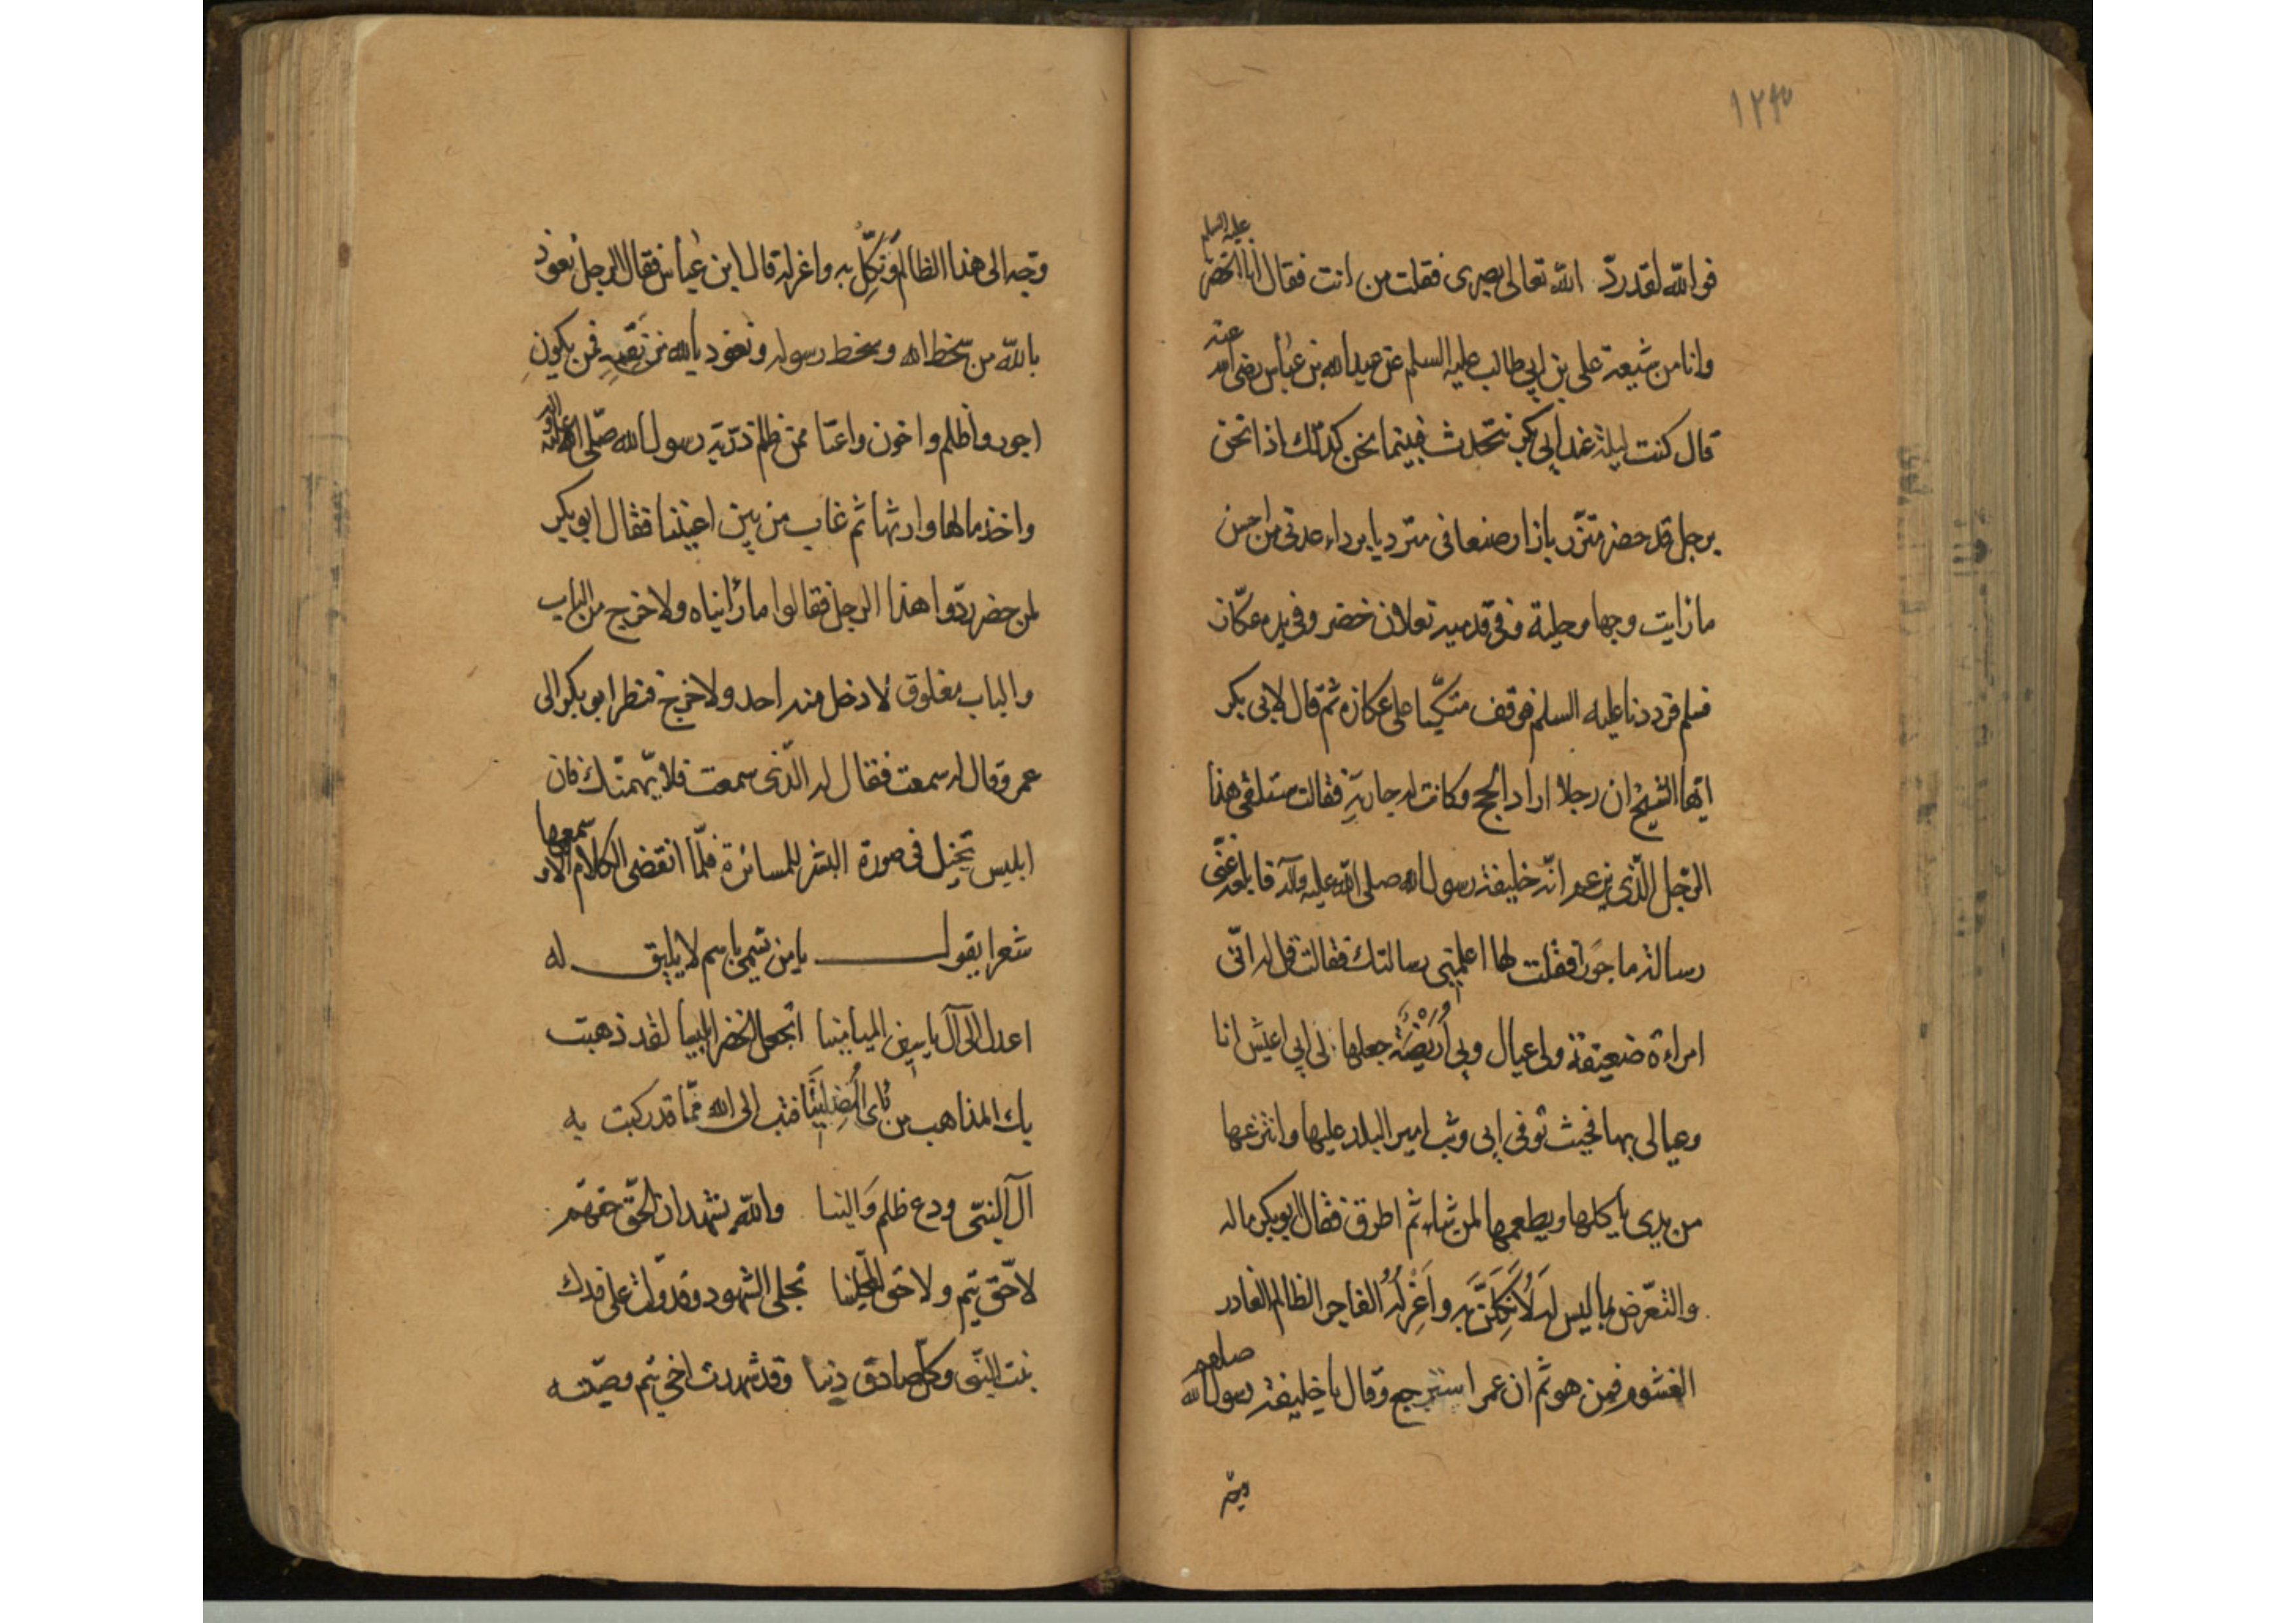 ١٢٣
فوالله لقد ردّ الله تعالى بصرى فقلت من انت فقال انا الخضر عليه السلم
وانا من شيعة على بن ابى طالب عليه السلم عن عبدالله بن عباس رضى الله عنه
قال كنت ليلة عند ابى بكر نتحدث فبينما نحن كذلك اذا نحن
برجل قد حضر متزر بازار صنعانى متردياً برداء عدنى من احسن
ما رايت وجها وحلية وفى قدميه نعلان خضر وفى يده عكاز
فسلم فرددنا عليه السلم فوقف متكيا على عكازه ثم قال لابى بكر
ايها الشيخ ان رجلا اراد الحج وكانت له جارية فقالت ستلقى هذا
الرجل الذى يزعم انه خليفة رسول الله صلى الله عليه وآله فابلغه عنى
رسالة ماجورا فقلت لها اعلمينى رسالتك فقالت قل له انى
امراءة ضعيفة ولى عيال وبى اريضة جعلها لى ابى اعيش انا
وعيالى بها فحيث توفى ابى وثب امير البلد عليها وانتزعها
من يدى ياكلها ويطعمها لمن شاء ثم اطرق فقال ابو بكر ماله
والتعرض بما ليس له لَاُنَكِلَنَّ به واَعْزِلُهُ الفاجر الظالم الغادر
الغشوم فمن هو ثم ان عمر استرجع وقال يا خليفة رسول الله صلعم
وجّه
وجّه الى هذا الظالم ونَكِّلُ به واعزله قال ابن عباس فقال الرجل نعوذ
بالله من سخط الله وسخط رسوله ونعوذ بالله من نقمه فمن يكون
اجور واظلم واخون واعتا ممن ظلم ذرّية رسول الله صلّى الله عليه وآله
واخذ مالها وارثها ثم غاب من بين اعيننا فقال ابو بكر
لمن حضر ردّوا هذا الرجل فقالوا ما رأيناه ولا خرج من الباب
والباب مغلوق لا دخل منه احد ولا خرج فنظر ابو بكر الى
عمر وقال له سمعت فقال له الّذى سمعت فلا يهمنّك فان
ابليس تخيل فى صورة البشر للمسائرة فلمّا انقضى الكلام الا و سمعها
شعرا يقول يا من تسمى باسم لا يليق له
اعدل الى آل ياسين الميامينا اتجعل الخضر ابليسا لقد ذهبت
بك المذاهب من راى المضلينا فتب الى الله ممّا قد ركبت به
آل النبىّ ودع ظلم والينا والله يشهد ان الحقّ حقهم
لا حق تيم ولا حق تجلى الشهود وقد دلت على فدك
بنت النبى وكل صادق دينا وقد شهدت اخى تيم وصيته